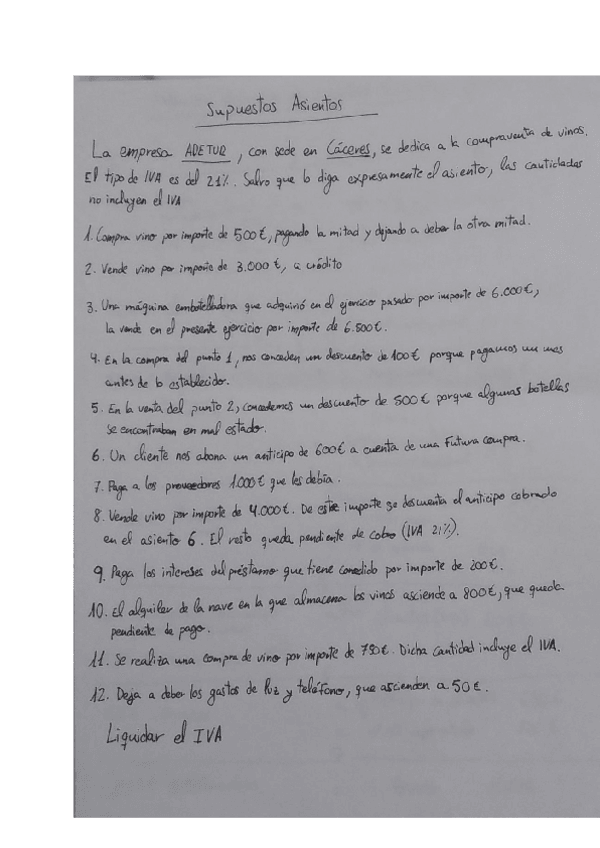 Supuestos Asientos
La empresa ADETUR, con sede en Cáceres, se dedica a la compraventa de vinos.
El tipo de IVA es del 21%. Salvo que lo diga expresamente el asiento, las cantidades
no incluyen el IVA
1. Compra vino por importe de 500€, pagando la mitad y dejando a deber la otra mitad.
2. Vende vino por importe de 3.000 €, a crédito
3. Una máquina embotelladora que adquirió en el ejercicio pasado por importe de 6.000€,
la vende en el presente ejercicio por importe de 6.500€.
4. En la compra del punto 1, nos conceden un descuento de 100€ porque pagamos un mes
antes de lo establecido.
5. En la venta del punto 2, concedemos un descuento de 500€ porque algunas botellas
se encontraban en mal estado.
6. Un cliente nos abona un anticipo de 600€ a cuenta de una futura compra.
7. Paga a los proveedores 1.000€ que les debía.
8. Vende vino por importe de 4.000€. De este importe se descuenta el anticipo cobrado
en el asiento 6. El resto queda pendiente de cobro (IVA 21%).
9. Paga los intereses del préstamo que tiene concedido por importe de 200€.
10. El alquiler de la nave en la que almacena los vinos asciende a 800€, que queda
pendiente de pago.
11. Se realiza una compra de vino por importe de 750€. Dicha cantidad incluye el IVA.
12. Deja a deber los gastos de luz y teléfono, que ascienden a 50€.
Liquidar el IVA